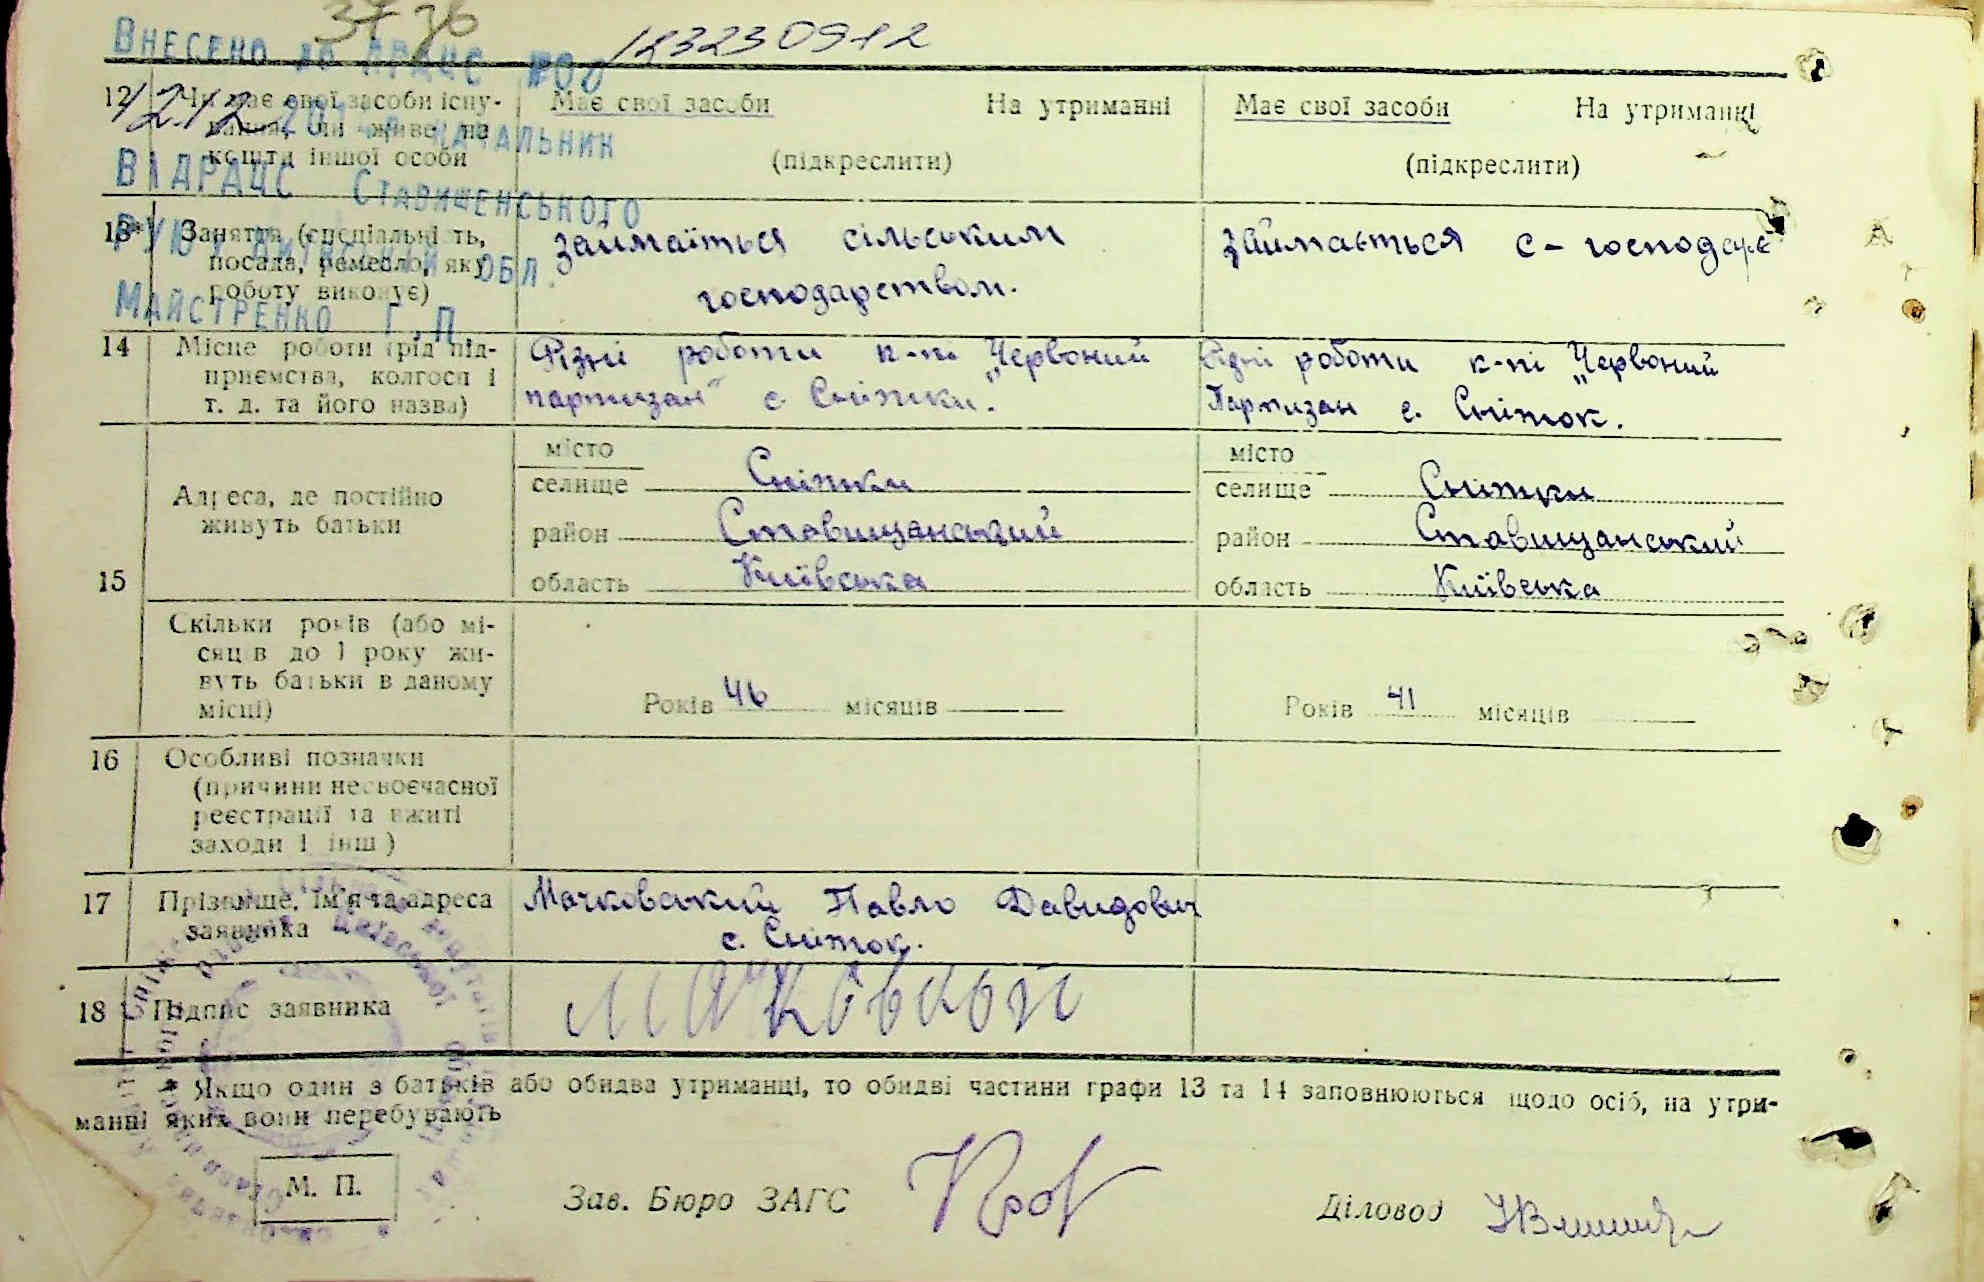 37 76
1232309-12
ВНЕСЕНО ДО ДРАЦС №00
12.12.201 НАЧАЛЬНИК
ВІДРАЦС СТАВИЩЕНСЬКОГО
РУЮ ОБЛ.
МАЙСТРЕНКО Г.П
12 Чи має свої засоби існу- Має свої засоби На утриманні Має свої засоби На утриманні
вання, чи живе на
кошти іншої особи (підкреслити) (підкреслити)
13* Заняття (спеціальність, займаїться сільським займається с-господар
посада, ремесло, яку
роботу виконує) господарством.
14 Місце роботи (рід під- Різні роботи к-п. „Червоний Різні роботи к-пі „Червоний
приємства, колгосп і партизан" с. Сніжки. Партизан с. Сніжок.
т. д. та його назва)
15 Адреса, де постійно живуть батьки
місто місто
селище Сніжки селище Сніжки
район Ставищанський район Ставищанський
область Київська область Київська
Скільки років (або мі-
сяців до 1 року жи-
вуть батьки в даному
місці) Років 46 місяців Років 41 місяців
16 Особливі позначки
(причини несвоєчасної
реєстрації та вжиті
заходи і інш)
17 Прізвище, ім'я та адреса Мачковський Павло Давидович
заявника с. Сніжок.
18 Підпис заявника Мачковский
Якщо один з батьків або обидва утриманці, то обидві частини графи 13 та 14 заповнюються щодо осіб, на утри-
манні яких вони перебувають
М. П.
Зав. Бюро ЗАГС
Діловод